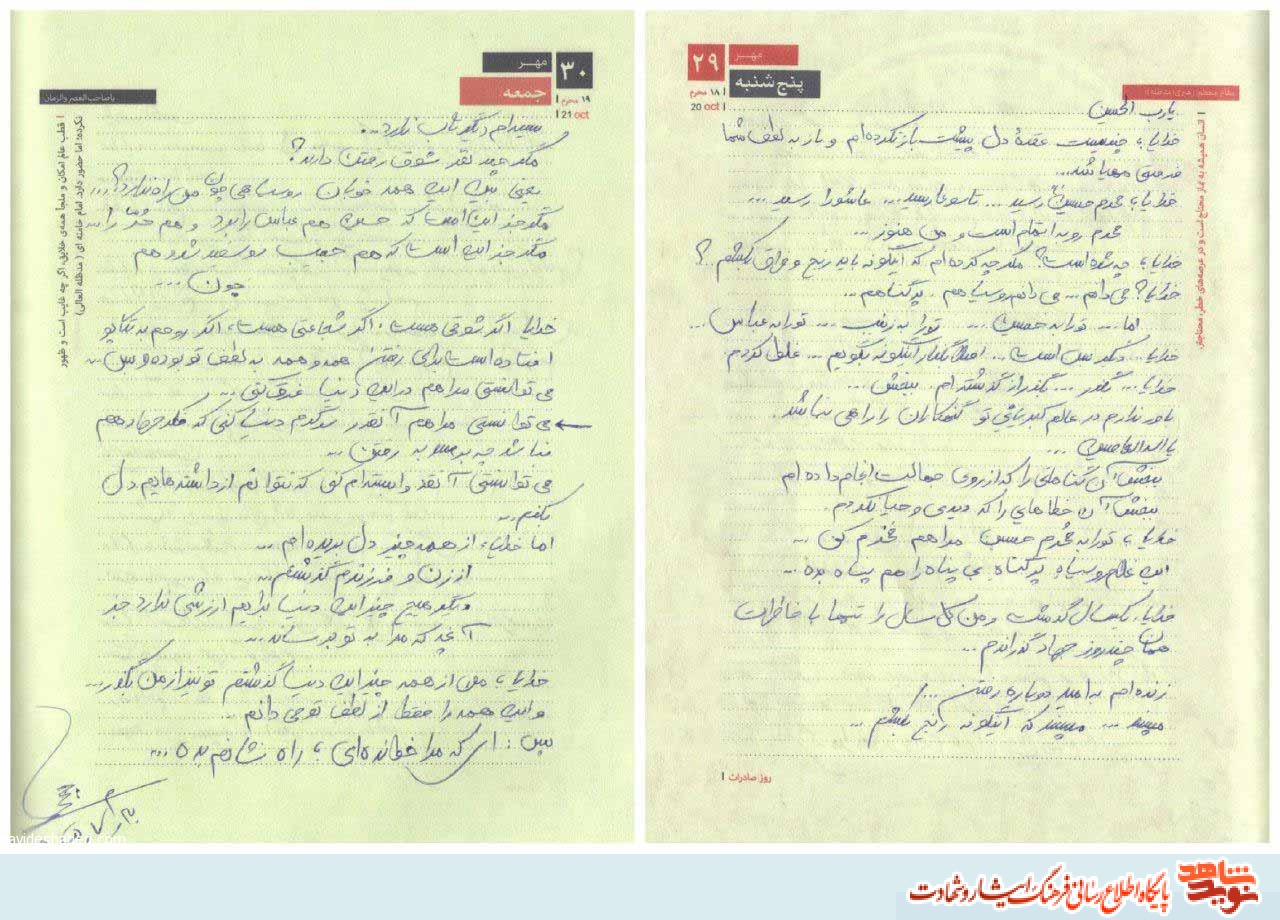 ۲۹
مهر
پنج شنبه
۱۸ محرم
20 oct
انسان همیشه به نماز محتاج است و در عرصه‌های خطر، محتاج‌تر
یا رب الحسین
خدایا، چندیست عقدهٔ دل پیشت باز نکرده‌ام و باز به لطف شما
فرصتی مهیا شد...
خدایا، محرم حسین رسید ... تاسوعا رسید... عاشورا رسید ...
محرم رو به اتمام است و من هنوز ...
خدایا، چه شده است؟ مگر چه کرده‌ام که اینگونه باید رنج و فراق بکشم ..؟
خدایا؟ می‌دانم ... می‌دانم روسیاهم . پر گناهم ...
اما ... تو را به حسین ... تو را به زینب ... تو را به عباس ...
خدایا... دیگر بس است ... اصلا بگذار اینگونه بگویم ... غلط کردم
خدایا... بگذر ... بگذر از گذشته‌ام . ببخش ...
باور ندارم در عالم کبریایی تو گنهکاران را راهی نباشد
یا اله العاصین ...
ببخش آن گناهانی را که از روی جهالت انجام داده ام
ببخش آن خطاهایی را که دیدی و حیا نکردم .
خدایا، تو را به محرم حسین مرا هم محرم کن ...
این غلام روسیاه پر گناه بی پناه را هم پناه بده ...
خدایا، یکسال گذشت و من کل سال را تنها با خاطرات
همان چند روز جهاد گذراندم ...
زنده‌ام به امید دوباره رفتن ...!
مپسند ... مپسند که اینگونه رنج بکشم ...
روز صادرات
۳۰
مهر
جمعه
۱۹ محرم
21 oct
یا صاحب العصر والزمان
قطب عالم امکان و ملجأ همه‌ی خلایق، اگر چه غایب است و ظهور
نکرده؛ اما حضور دارد. امام خامنه ای ( مدظله العالی)
سینه‌ام دیگر تاب ندارد...
مگر چند نفر شوق رفتن دارند؟
یعنی بین این همه خوبان روسیاهی چون من راه ندارد؟ ...
مگر جز این است که حسین هم عباس را برد و هم حُر را...
مگر جز این است که هم حبیب رو سفید شد و هم
جون ...
خدایا اگر شوقی هست، اگر شجاعتی هست، اگر روحم به تکاپو
افتاده است برای رفتن همه و همه به لطف تو بوده و بس ...
می توانستی مرا هم در این دنیا غرق کنی ...
می توانستی مرا هم آنقدر سرگرم دنیا کنی که فکر جهاد هم
نباشد چه برسد به رفتن ...
می توانستی آنقدر وابسته‌ام کنی که نتوانم از داشته‌هایم دل
بکنم ...
اما خدایا، از همه چیز دل بریده‌ام ...
از زن و فرزندم گذشتم ...
دیگر هیچ چیز این دنیا برایم ارزشی ندارد جز
آنچه که مرا به تو برساند...
خدایا، من از همه چیز این دنیا گذشتم تو نیز از من بگذر ...
و این همه را فقط از لطف تو می دانم ...
پس : ای که مرا خوانده‌ای، راه نشانم بده ...
نوید شاهد
پایگاه اطلاع رسانی فرهنگ ایثار و شهادت